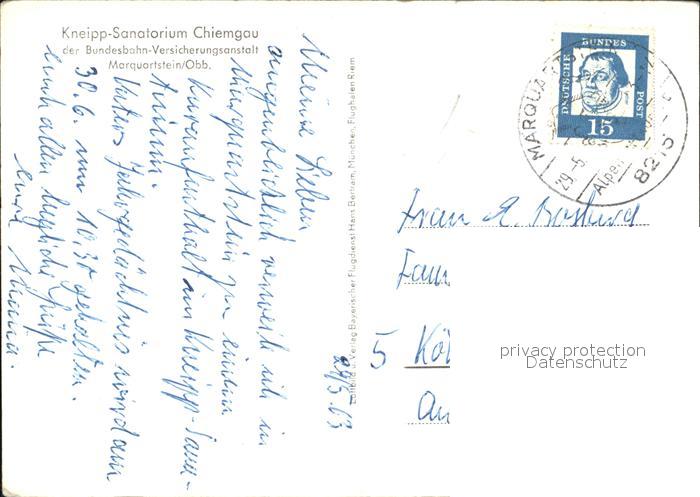 Kneipp-Sanatorium Chiemgau
der Bundesbahn-Versicherungsanstalt
Marquartstein/Obb.
29/5.63
Meine Lieben
augenblicklich verweile ich in
Marquartstein zu einem
Kuraufenthalt im Kneipp-Sana-
torium.
Vaters Jahrgedächtnis wird am
30.6. um 10,30 gehalten.
Euch allen herzliche Grüße
eure Mama.
Luftbild u. Verlag Bayerischer Flugdienst Hans Bertram, München, Flughafen Riem
DEUTSCHE BUNDES POST
15
MARQUART
29.-5.
Alpen
8215
Frau A.
Fam
5 Köl
An
privacy protection
Datenschutz